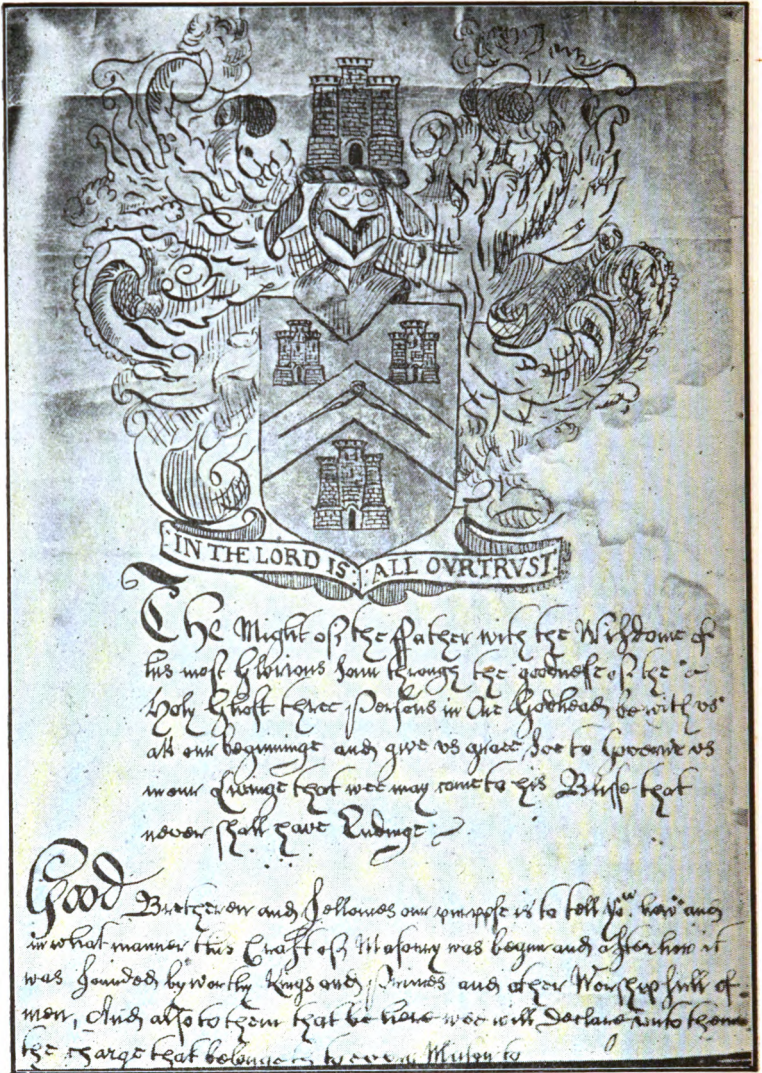 IN THE LORD IS : ALL OVR TRVST.
The Might of the Father with the Wisdome of
his most Glorious Sonn through the goodnesse of the
Holy Ghost three Persons in One Godhead be with us
att our beginninge and give vs grace soe to Governe vs
in our Livinge that wee may come to his Blisse that
never shall have Endinge
Good Bretheren and Fellowes our purpose is to tell yow how and
in what manner this Craft of Masonry was begun and after how it
was founded by worthy Kings and Princes and other Worshipfull
men, And also to them that be heere wee will declare unto them
the charge that belongeth to every Mason to